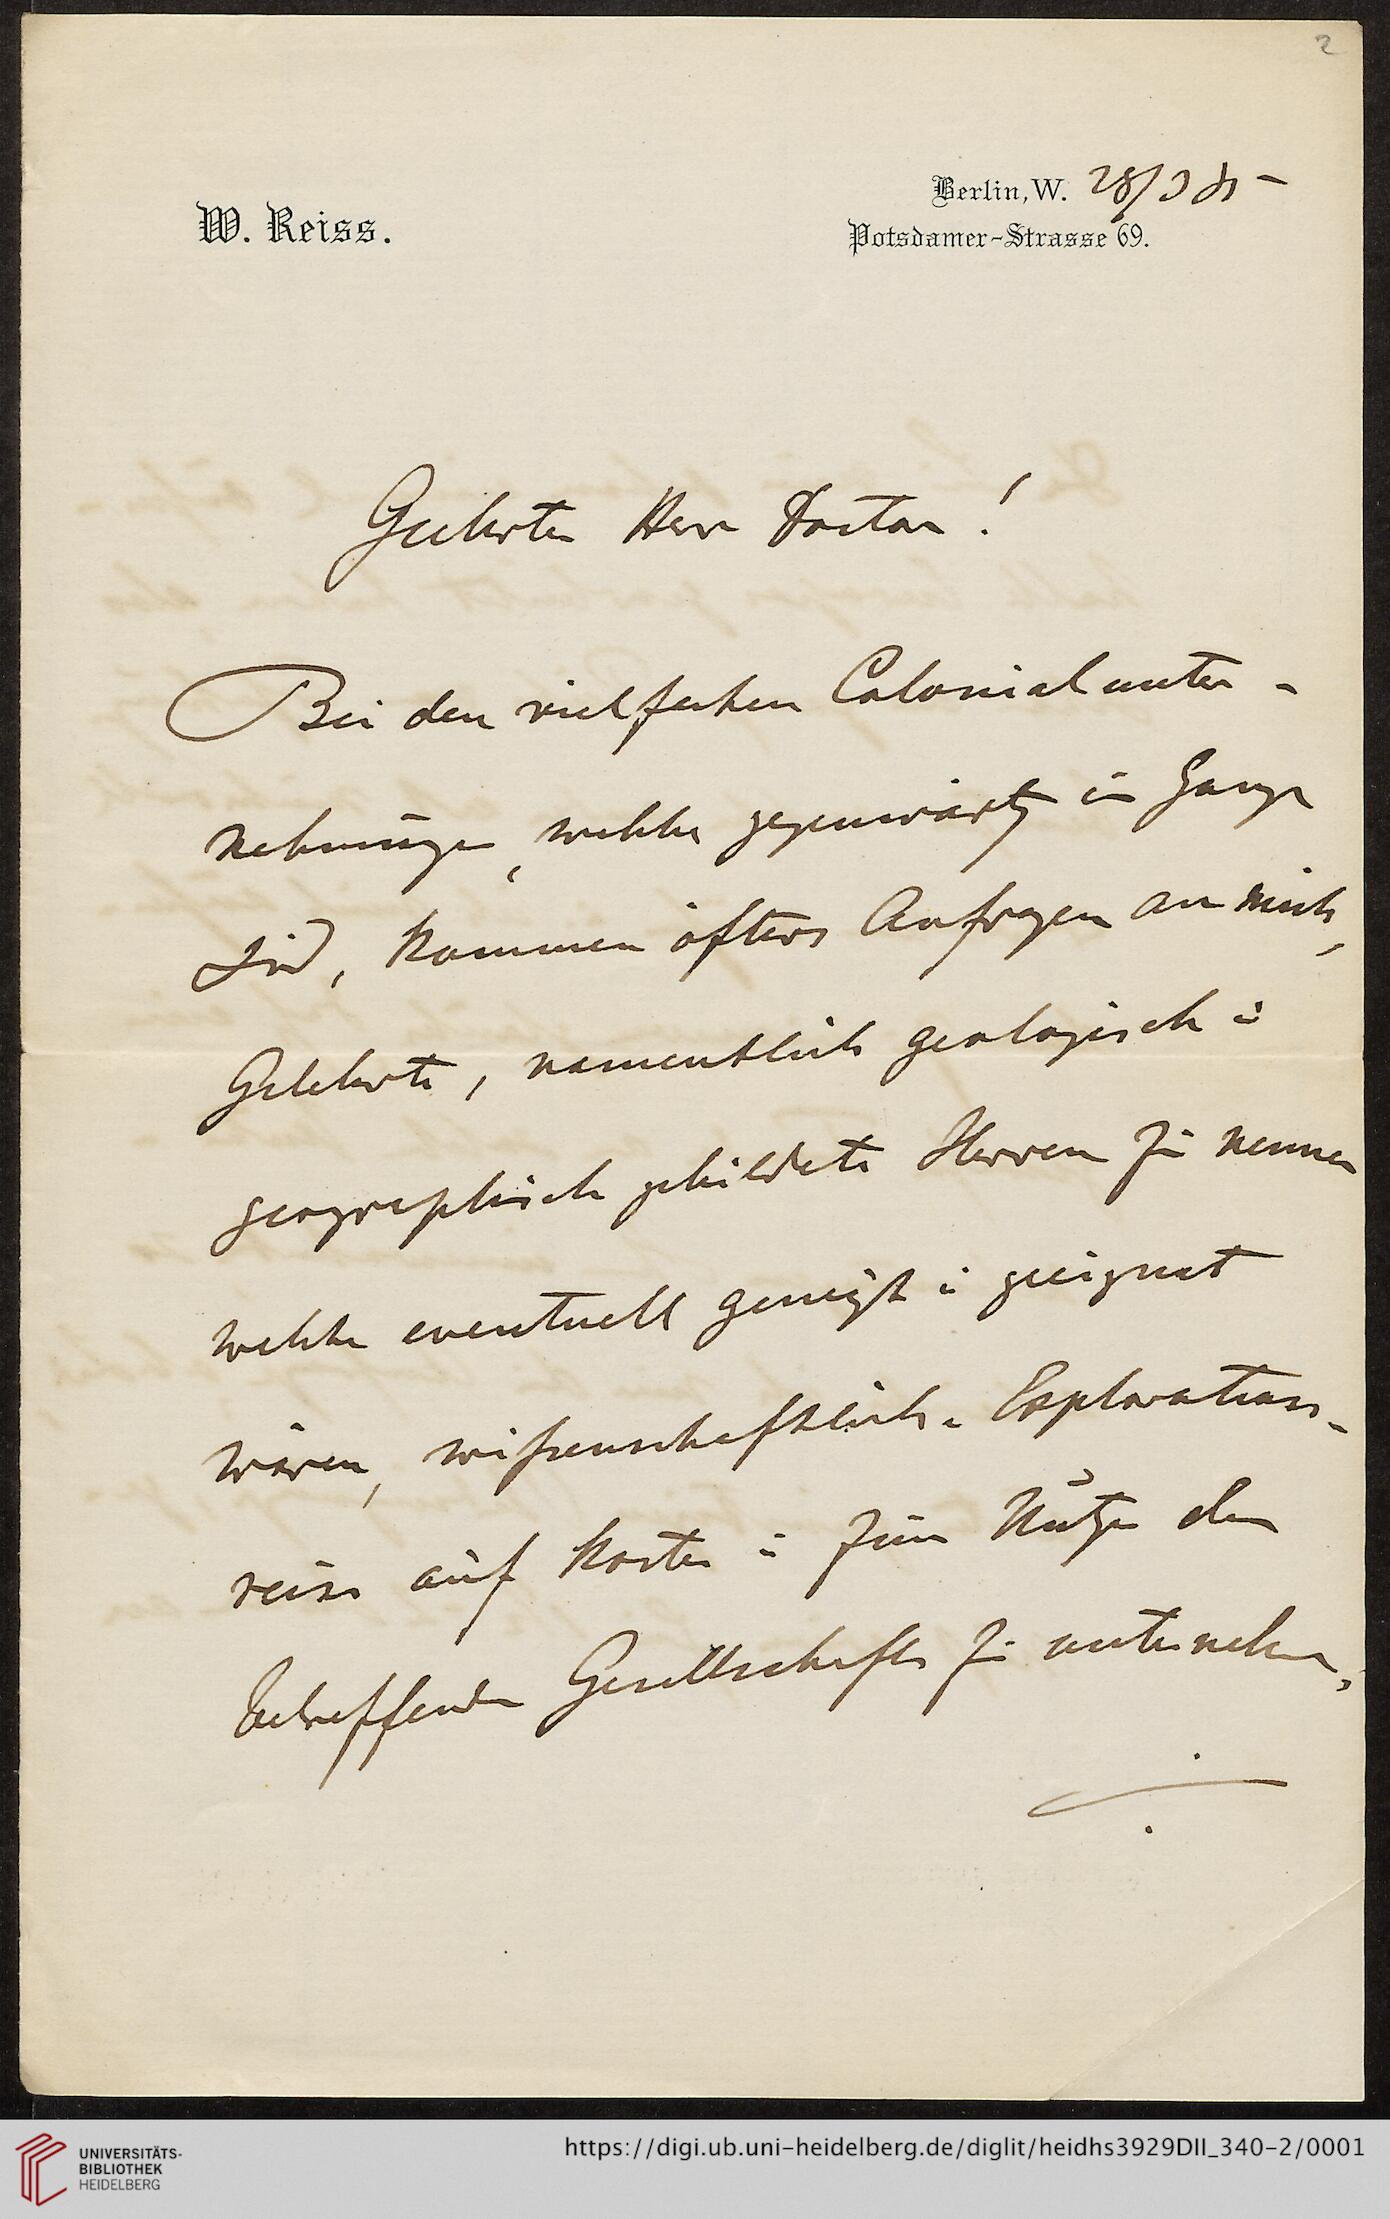 2
W. Reiss.
Berlin, W. 28/3 85
Potsdamer-Strasse 69.
Geehrter Herr Doctor!
Bei den vielfachen Colonialunter-
nehmungen, welche gegenwärtig im Gange
sind, kommen öfters Anfragen an mich,
Gelehrte, namentlich geologisch u
geographisch gebildete Herren zu nennen
welche eventuell geneigt u geeignet
wären, wissenschaftliche Explorations-
reisen auf Kosten u zum Nutzen der
betreffenden Gesellschaften zu unternehmen.
UNIVERSITÄTS-
BIBLIOTHEK
HEIDELBERG
https://digi.ub.uni-heidelberg.de/diglit/heidhs3929DII_340-2/0001